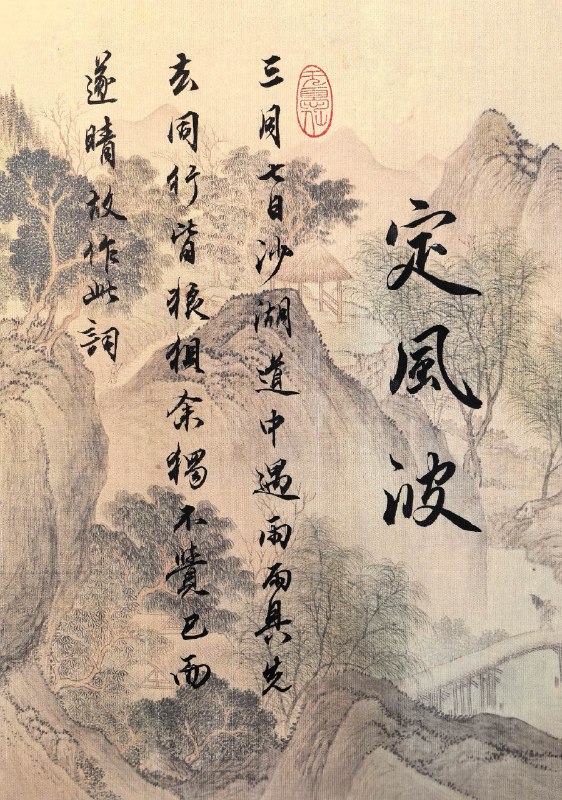 定風波
三月七日沙湖道中遇雨雨具先
去同行皆狼狽余獨不覺已而
遂晴故作此詞